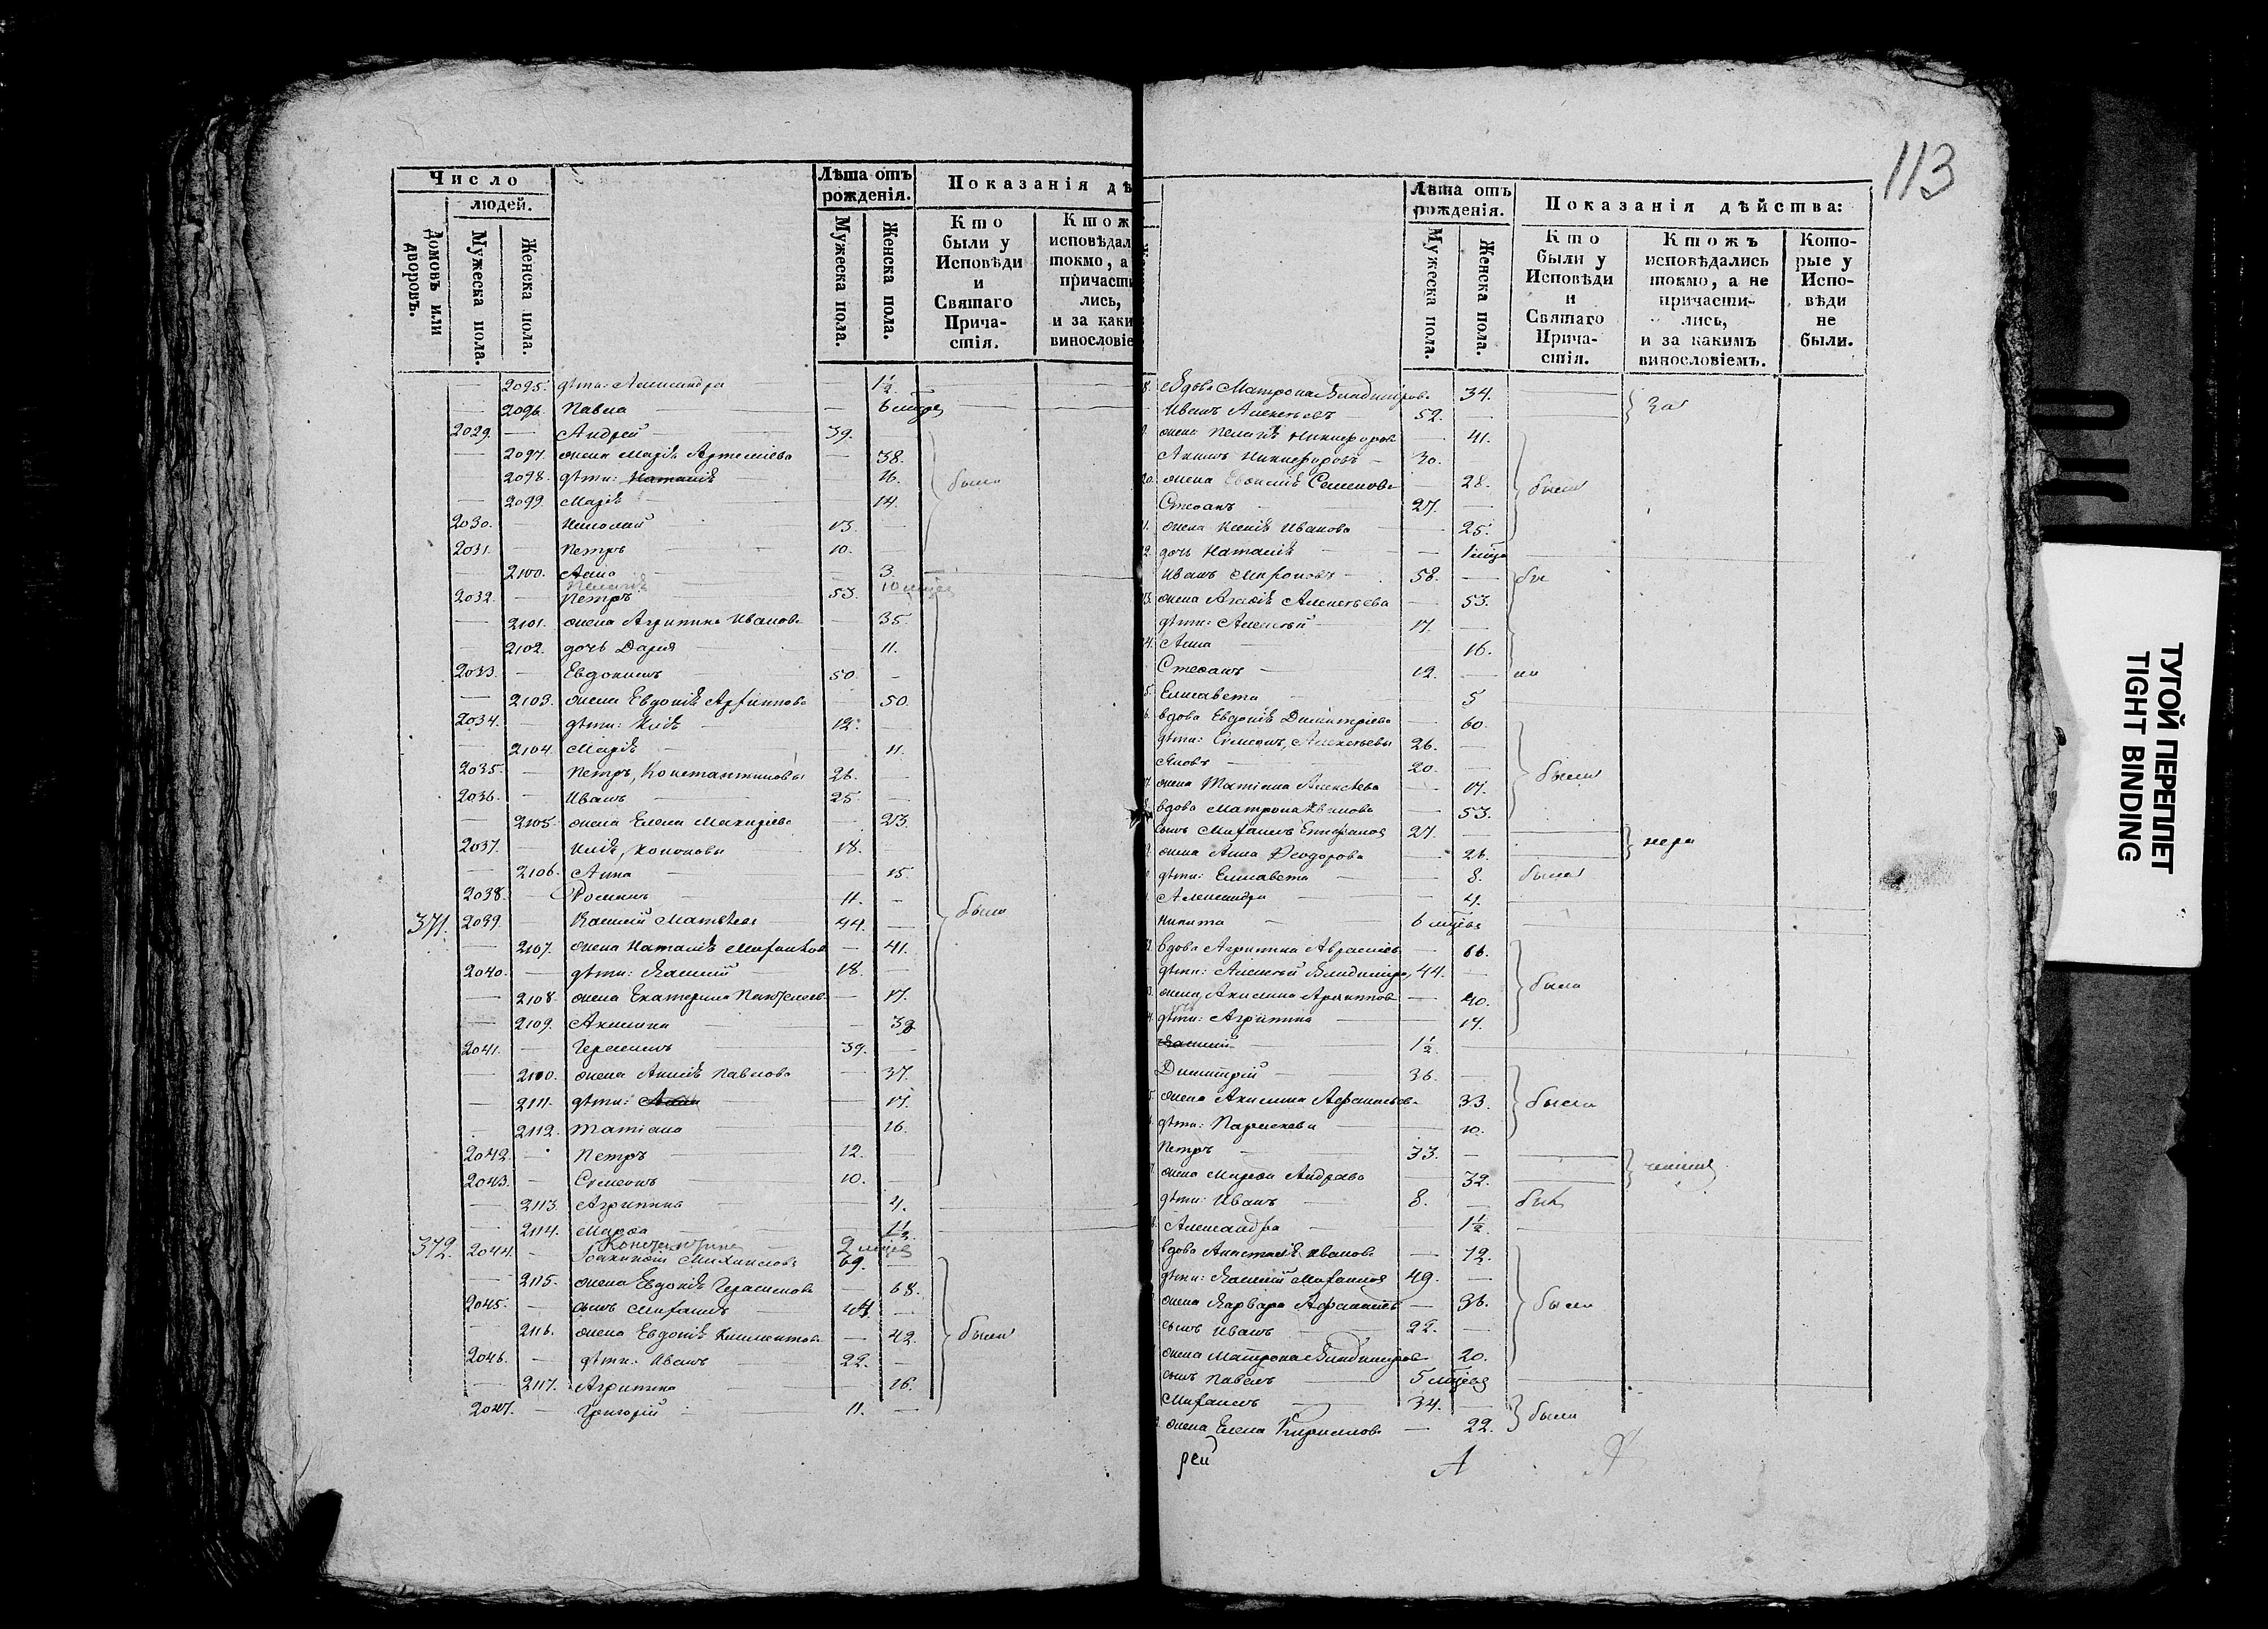 113
Число
людей.
домовъ или дворовъ.
Мужеска пола.
Женска пола.
Лѣта отъ рожденія.
Мужеска пола.
Женска пола.
Показанія дѣ
Кто были у Исповѣди и Святаго Прича-стія.
Ктож исповѣдал токмо, а причасти лись, и за каки винословіе
2095. дѣти: Александра 1½
2096. Павла 6 мцов
2029. Андрей 39.
2097. жена Марія Артеміева 38.
2098. дѣти: Наталія 16. были
2099. Марія 14.
2030. Николай 13.
2031. Петръ 10.
2100. Анна 3.
Пелагія 10 мцев
2032. Петръ 53.
2101. жена Агрипина Иванова 35.
2102. дочь Дарія 11.
2033. Евдокимъ 50.
2103. жена Евдокія Архиппова 50.
2034. дѣти: Илія 12.
2104. Марія 11.
2035. Петръ, Константиновы 26.
2036. Иванъ 25.
2105. жена Елена 23.
2037. Илія, Кононовы 18.
2106. Анна 15.
2038. Романъ 11.
371. 2039. Василій Матвѣевъ 44. были
2107. жена Наталія Михайлова 41.
2040. дѣти: Василій 18.
2108. жена Екатерина 17.
2109. Акилина 38
2041. Герасимъ 39.
2110. жена Анисія Павлова 37.
2111. дѣти: Анна 17.
2112. Татіана 16.
2042. Петръ 12.
2043. Симеонъ 10.
2113. Агрипина 4.
2114. Марѳа 1½
Константинъ 2 мцев
372. 2044. Іоанникій Михайловъ 69.
2115. жена Евдокія Герасимова 68.
2045. сынъ Михаилъ 44.
2116. жена Евдокія Климентова 42. были
2046. дѣти: Иванъ 22.
2117. Агрипина 16.
2047. Григорій 11.
Лѣта отъ рожденія.
Мужеска пола.
Женска пола.
Показанія дѣйства:
Кто были у Исповѣди и Святаго Прича-стія.
Ктожъ исповѣдались токмо, а не причасти-лись, и за какимъ винословіемъ.
Кото-рые у Испо-вѣди не были.
вдова Матрона Владимірова 34.
Иванъ Алексѣевъ 52.
жена Пелагія Никифорова 41.
Акимъ Никифоровъ 30.
жена Евфимія Семенова 28. были
Стефанъ 27.
жена Ксенія Иванова 25.
дочь Наталія 1 мцъ
Иванъ Мироновъ 58.
жена Агафія Алексѣева 53.
дѣти: Алексѣй 17.
Анна 16.
Стефанъ 12.
Елисавета 5
вдова Евдокія Димитріева 60.
дѣти: Симеонъ, Алексѣевы 26.
Яковъ 20. были
жена Татіана Алексѣева 17.
вдова Матрона Иванова 53.
сынъ Михаилъ Епифанов 27.
жена Анна Ѳеодорова 26.
дѣти: Елисавета 8. была
Александра 4.
Никита 6 мцев
вдова Агрипина 66.
дѣти: Алексѣй Владиміров 44. были
жена Акилина Архиппова 40.
дѣти: Агрипина 14.
Василій 1½
Димитрій 36.
жена Акилина Афанасьева 33. были
дѣти: Параскева 10.
Петръ 33.
жена Марѳа Андреева 32.
дѣти: Иванъ 8. былъ
Александра 1½
вдова Анастасія Иванова 72.
дѣти: Василій Михайлов 49.
жена Варвара Афанасіева 36. были
сынъ Иванъ 22.
жена Матрона Владимірова 20.
сынъ Павелъ 5 мцев
Михаилъ 34. были
жена Елена Кирилова 22.
рей
А
ТУГОЙ ПЕРЕПЛЕТ
TIGHT BINDING